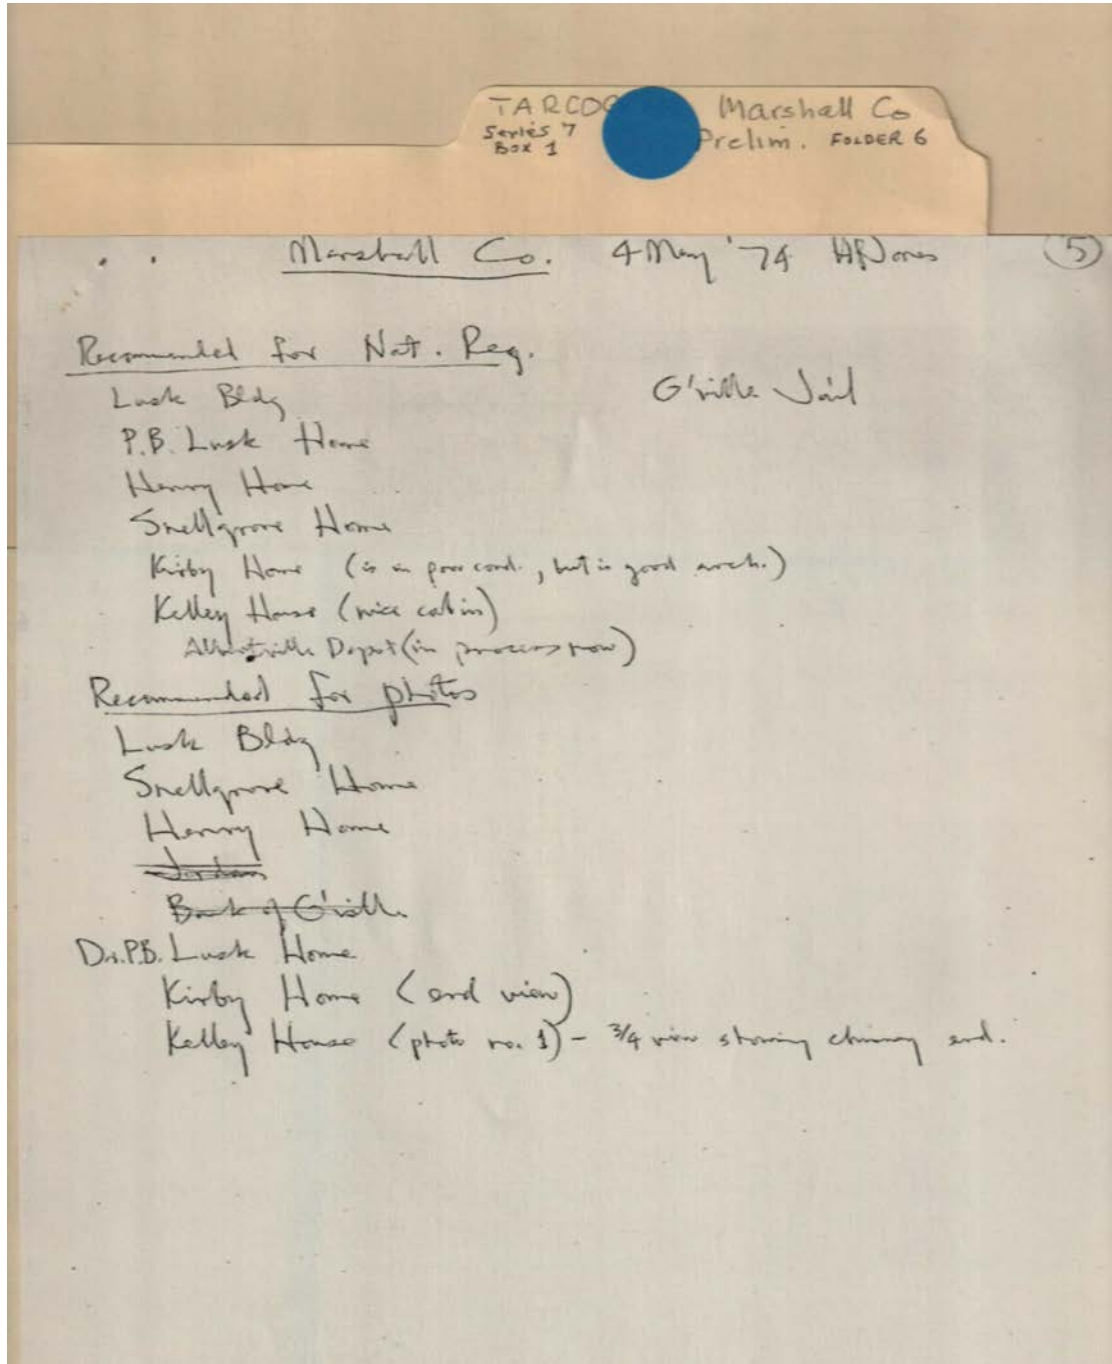 TARCOG Marshall Co
Series 7 Prelim. FOLDER 6
Box 1
Marshall Co. 4 May '74 HPJones 5
Recommended for Nat. Reg.
Lusk Bldg G'ville Jail
P.B. Lusk Home
Henry Home
Snellgrove Home
Kirby Home (is in poor cond., but is good arch.)
Kelley House (nice cabin)
Albertville Depot (in process now)
Recommended for photos
Lusk Bldg
Snellgrove Home
Henry Home
Jordan
Bank of G'ville
Dr. P.B. Lusk Home
Kirby Home (end view)
Kelley House (photo no. 1) - 3/4 view showing chimney end.